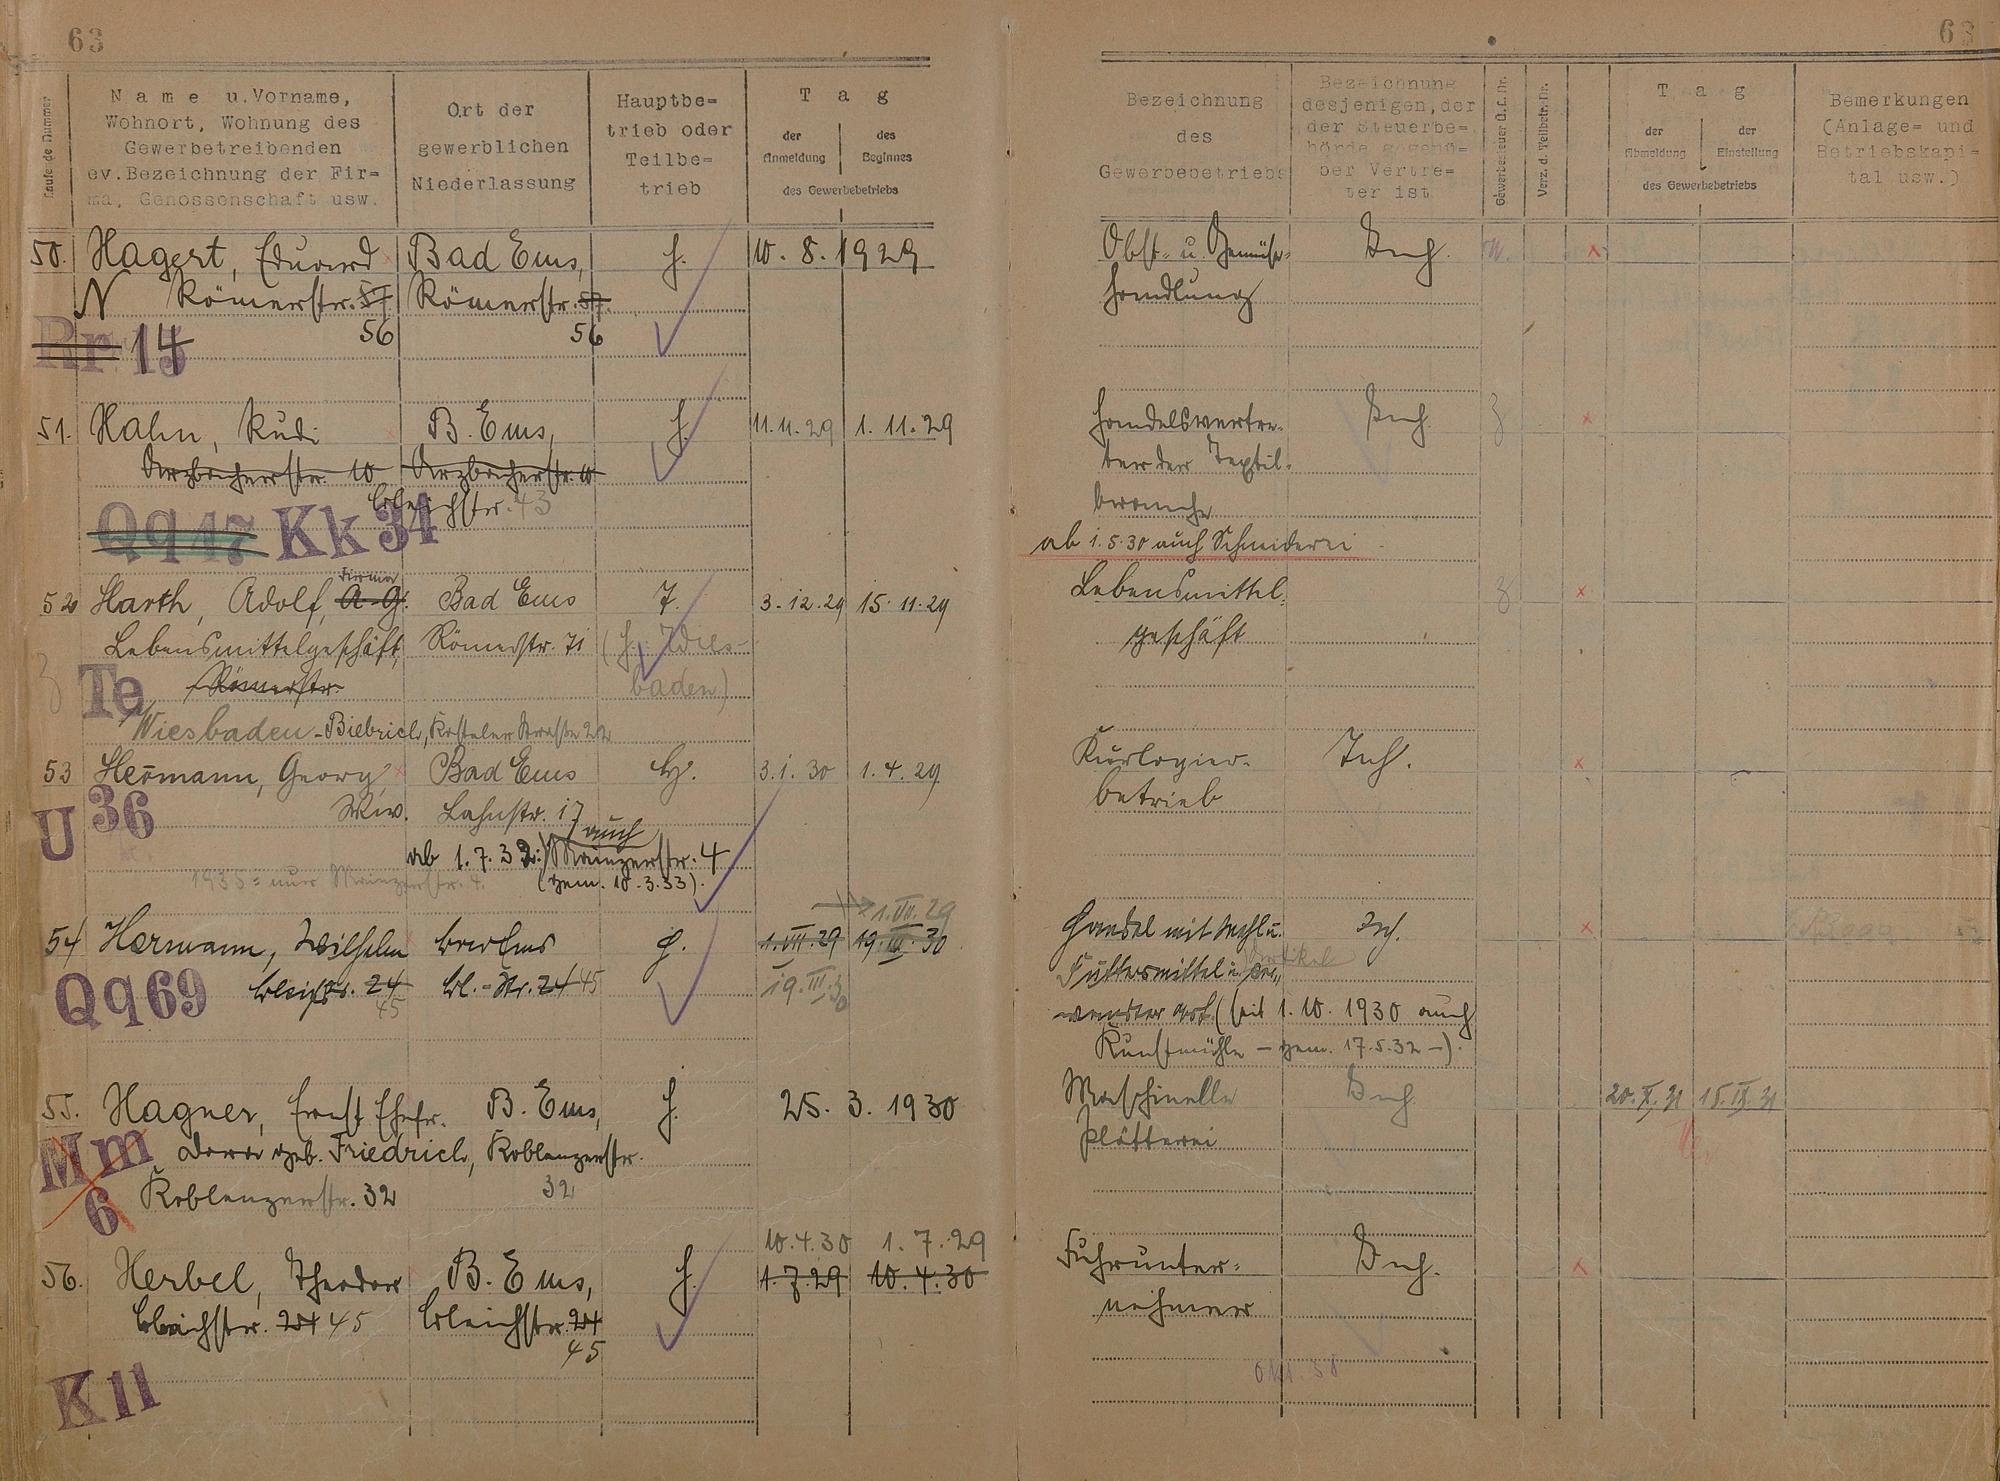 63
63
Laufende Nummer
Name u.Vorname,
Wohnort, Wohnung des
Gewerbetreibenden
ev.Bezeichnung der Fir=
ma, Genossenschaft usw.
Ort der
gewerblichen
Niederlassung
Hauptbe=
trieb oder
Teilbe=
trieb
Tag
der
Anmeldung
des
Beginnes
des Gewerbebetriebs
Bezeichnung
des
Gewerbebetriebs
Bezeichnung
desjenigen, der
der Steuerbe=
hörde gegenü=
ber Vertre=
ter ist
Gewerbesteuer A.L. Nr.
Verz. d. Teilbetr. Nr.
Tag
der
Abmeldung
der
Einstellung
des Gewerbebetriebs
Bemerkungen
(Anlage= und
Betriebskapi=
tal usw.)
50. Hagert, Eduard Bad Ems, H. 10. 8. 1929 Obst- u. Gemüse- Inh.
N Römerstr. 57 Römerstr. 57. handlung
56 56
Rr 14
51. Hahn, Rudi B. Ems, H. 11.11.29 1. 11. 29 Handelsvertre- Inh.
Arzbacherstr. 10 Arzbacherstr. 10 ter der Textil-
Bleichstr. 43 branche
Qq 17 Kk 34
ab 1.5.30 auch Schneiderei
Firma
52 Harth, Adolf, A-G. Bad Ems F. 3.12.29 15.11.29 Lebensmittel-
Lebensmittelgeschäft, Römerstr. 71 (H. Wies- geschäft
Te Römerstr. baden)
Wiesbaden-Biebrich, Kasteler Strasse 22
53 Hermann, Georg Bad Ems H. 3.1.30 1.4.29 Kurlogier- Inh.
U 36 Wiw. Lahnstr. 17 betrieb
auch
ab 1.7.32: Mainzerstr. 4
1935 = nur Mainzerstr. 4. (gem. 10.3.33).
1.VII.29
54 Hermann, Wilhelm Bad Ems H. 1.VII.29 19.III.30 Handel mit Mehl u. Inh.
Qq 69 Bleichstr. 24 45 Bl.-Str. 24 45 19.III.30 Futtermittel u. ver-
wandter Art. (seit 1. 10. 1930 auch
Artikel
Kunstmühle - gem. 17.5.32 -).
55. Hagner, Ernst Ehefr. B. Ems, H. 25. 3. 1930 Maschinelle Inh. 20.X.31 15.IX.31
Mm Dora geb. Friedrich, Koblenzerstr. Plätterei
6 Koblenzerstr. 32 32
10.4.30 1.7.29
56. Herbel, Theodor B. Ems, H. 1.7.29 10.4.30 Fuhrunter- Inh.
Bleichstr. 24 45 Bleichstr. 24 nehmer
45
K 11